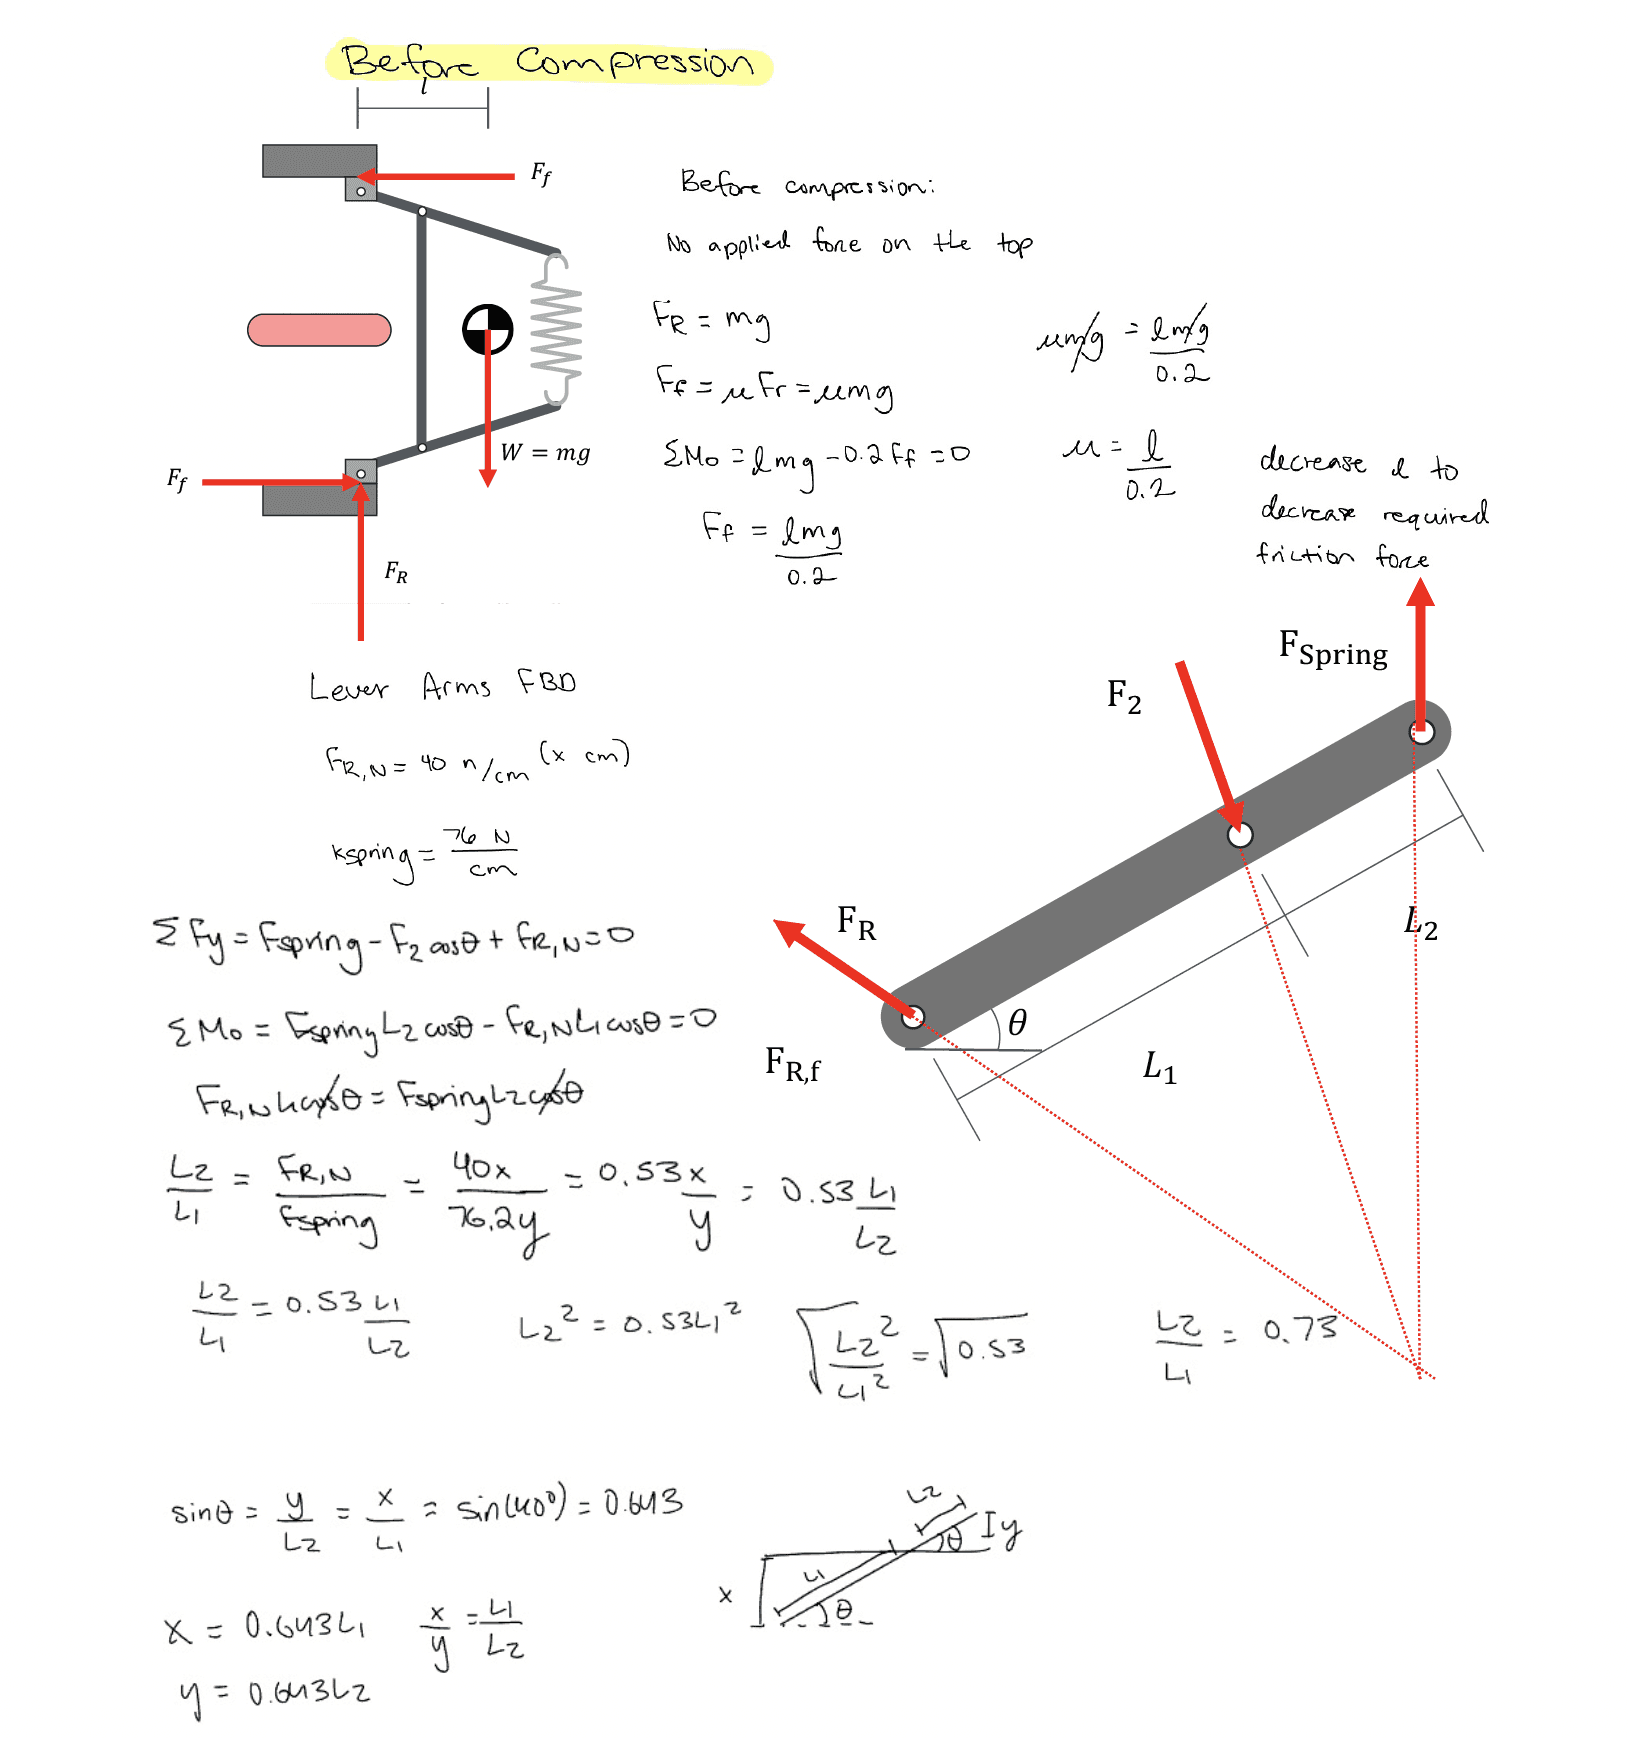 Before Compression
l
F_f
Before compression:
No applied force on the top
F_R = mg
F_f = μFr = μmg
ΣMo = lmg - 0.2Ff = 0
Ff = lmg / 0.2
μmg = lmg / 0.2
μ = l / 0.2
decrease l to
decrease required
friction force
W = mg
F_f
F_R
Lever Arms FBD
F_R,N = 40 n/cm (x cm)
kspring = 76 N / cm
ΣFy = Fspring - F₂cosθ + F_R,N = 0
ΣMo = FspringL₂cosθ - F_R,NL₁cosθ = 0
F_R,NL₁cosθ = FspringL₂cosθ
L₂/L₁ = F_R,N/Fspring = 40x/76.2y = 0.53 x/y = 0.53 L₁/L₂
L₂/L₁ = 0.53 L₁/L₂
L₂² = 0.53L₁²
√(L₂²/L₁²) = √0.53
L₂/L₁ = 0.73
F_Spring
F₂
F_R
F_R,f
θ
L₁
L₂
sinθ = y/L₂ = x/L₁ = sin(40°) = 0.643
x = 0.643L₁
x/y = L₁/L₂
y = 0.643L₂
L₂
θ
y
L₁
x
θ